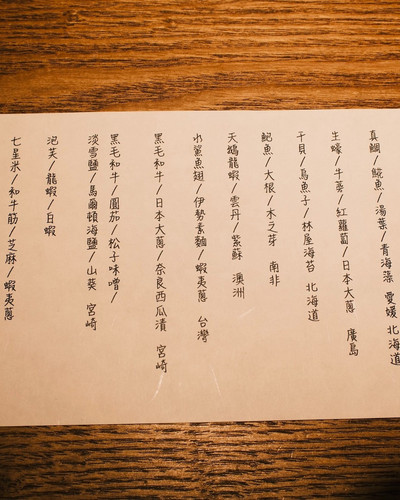 真鯛/鮵魚/湯葉/青海藻 愛媛 北海道
生蠔/牛蒡/紅蘿蔔/日本大蔥 廣島
干貝/烏魚子/林屋海苔 北海道
鮑魚/大根/木之芽 南非
天鵝龍蝦/雲丹/紫蘇 澳洲
水鯊魚翅/伊勢素麵/蝦夷蔥 台灣
黑毛和牛/日本大蔥/奈良西瓜漬 宮崎
黑毛和牛/圓茄/松子味噌/
淡雪鹽/馬爾頓海鹽/山葵 宮崎
泡芙/龍蝦/白蝦
七星米/和牛筋/芝麻/蝦夷蔥